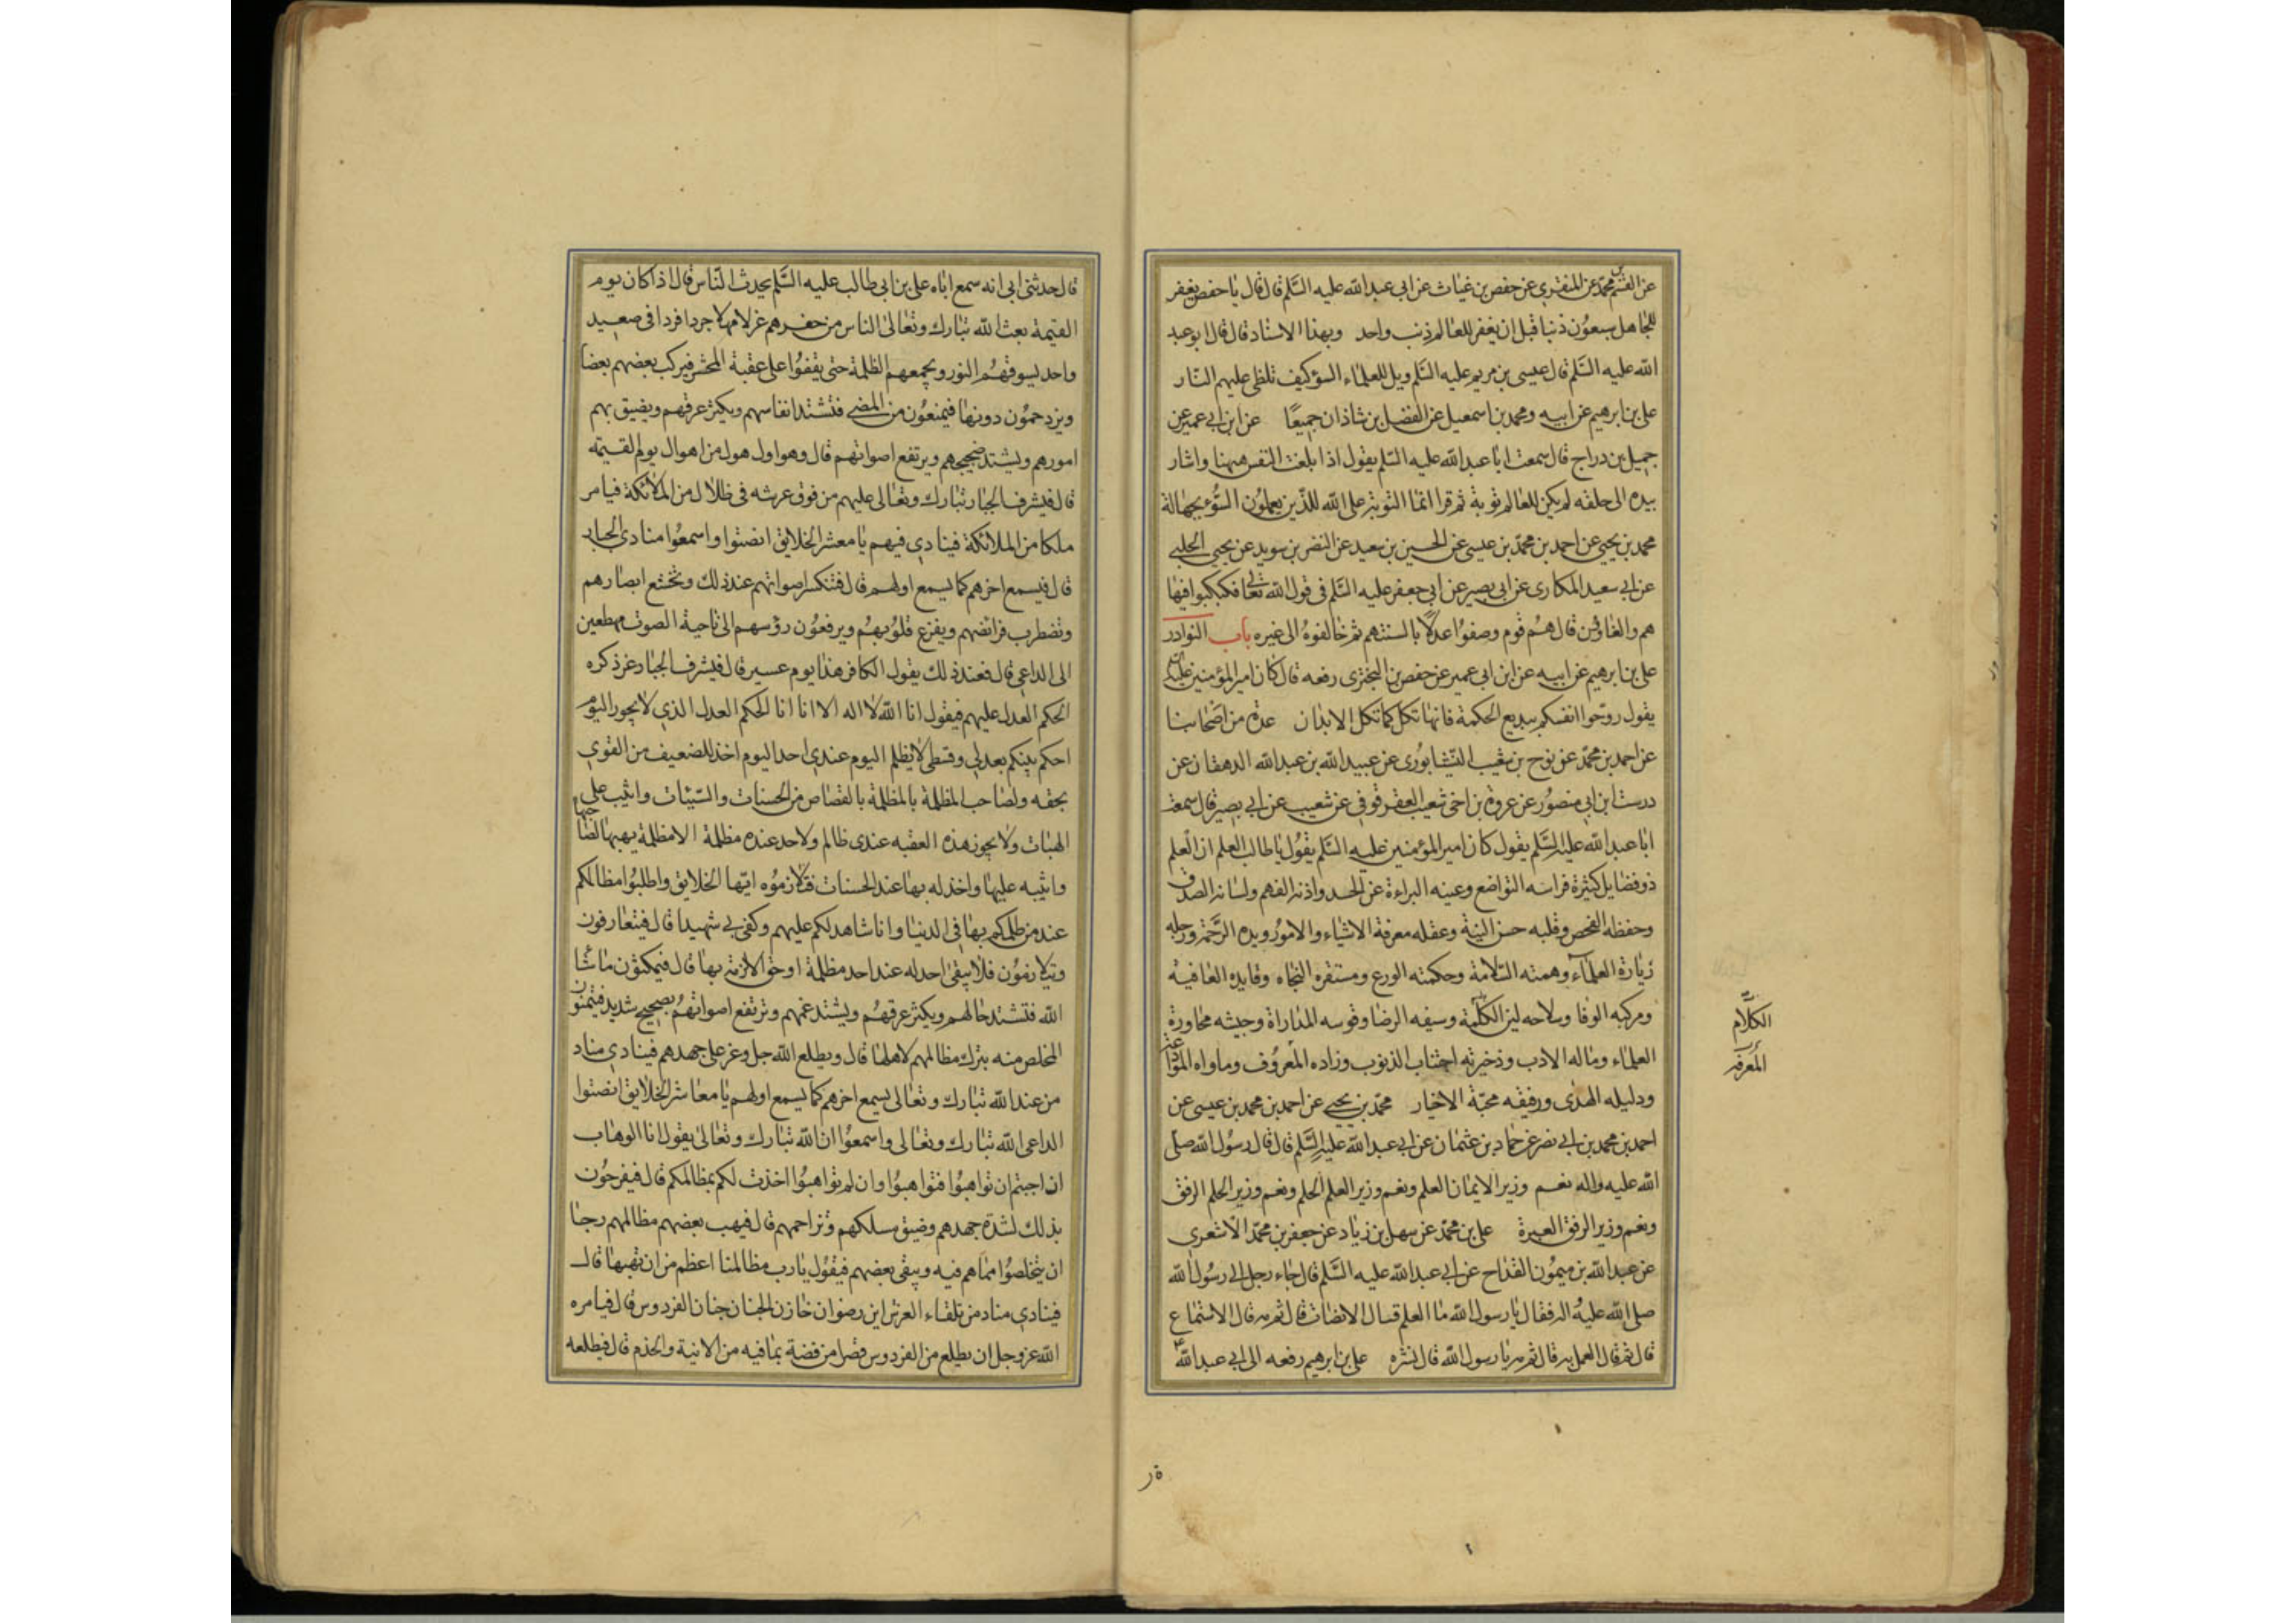 عن القسم بن محمد عن المنقري عن حفص بن غياث عن ابى عبد الله عليه السلم قال قال يا حفص يغفر
للجاهل سبعون ذنبا قبل ان يغفر للعالم ذنب واحد وبهذا الاسناد قال قال ابو عبد
الله عليه السلم قال عيسى بن مريم عليه السلم ويل للعلماء السوء كيف تلظى عليهم النار
على بن ابرهيم عن ابيه ومحمد بن اسمعيل عن الفضل بن شاذان جميعًا عن ابن ابي عمير عن
جميل بن دراج قال سمعت ابا عبد الله عليه السلم يقول اذا بلغت النفس ههنا واشار
بيده الى حلقه لم يكن للعالم توبة ثم قرا انما التوبة على الله للذين يعملون السوء بجهالة
محمد بن يحيي عن احمد بن محمد بن عيسى عن الحسين بن سعيد عن النضر بن سويد عن يحيي الحلبي
عن ابي سعيد المكارى عن ابى بصير عن ابي جعفر عليه السلم فى قول الله تعالى فكبكبوا فيها
هم والغاوون قال هم قوم وصفوا عدلا بالسنتهم ثم خالفوه الى غيره باب النوادر
على بن ابرهيم عن ابيه عن ابن ابى عمير عن حفص بن البخترى رفعه قال كان امير المؤمنين عليه السلم
يقول روحوا انفسكم ببديع الحكمة فانها تكل كما تكل الابدان عدة من اصحابنا
عن احمد بن محمد عن نوح بن شعيب النيشابورى عن عبيد الله بن عبد الله الدهقان عن
درست ابن ابي منصور عن عروة بن اخى شعيب العقرقوفى عن شعيب عن ابي بصير قال سمعت
ابا عبد الله عليه السلم يقول كان امير المؤمنين عليه السلم يقول يا طالب العلم ان العلم
ذو فضايل كثيرة فراسه التواضع وعينه البراءة عن الحسد واذنه الفهم ولسانه الصدق
وحفظه الفحص وقلبه حسن النية وعقله معرفة الاشياء والامور ويده الرحمة ورجله
زيارة العلماء وهمته السلامة وحكمته الورع ومستقره النجاه وقايده العافية
ومركبه الوفا وسلاحه لين الكلمة وسيفه الرضا وقوسه المداراة وجيشه محاورة
العلماء وماله الادب وذخيرته اجتناب الذنوب وزاده المعروف وماواه الموادعة
ودليله الهدى ورفيقه محبة الاخيار محمد بن يحيي عن احمد بن محمد بن عيسى عن
احمد بن محمد بن ابي نصر عن حماد بن عثمان عن ابي عبد الله عليه السلم قال قال رسول الله صلى
الله عليه واله نعم وزير الايمان العلم ونعم وزير العلم الحلم ونعم وزير الحلم الرفق
ونعم وزير الرفق العبرة على بن محمد عن سهل بن زياد عن جعفر بن محمد الاشعرى
عن عبد الله بن ميمون القداح عن ابي عبد الله عليه السلم قال جاء رجل الى رسول الله
صلى الله عليه واله فقال يا رسول الله ما العلم قال الانصات قال ثم مه قال الاستماع
قال ثم قال العمل به قال ثم مه يا رسول الله قال نشره على بن ابرهيم رفعه الى ابي عبد الله
الكلام
المعرفة
قال حدثنى ابى انه سمع اباه على بن ابى طالب عليه السلم يحدث الناس قال اذا كان يوم
القيمة بعث الله تبارك وتعالى الناس من حفرهم غرلا مهلا جردا فردا فى صعيد
واحد يسوقهم النور ويجمعهم الظلمة حتى يقفوا على عقبة المحشر فيركب بعضهم بعضا
ويزدحمون دونها فيمنعون من المضي فتشتد انفاسهم ويكثر عرقهم ويضيق بهم
امورهم ويشتد ضجيجهم ويرتفع اصواتهم قال وهو اول هول من اهوال يوم القيمة
قال فيشرف الجبار تبارك وتعالى عليهم من فوق عرشه فى ظلال من الملائكة فيامر
ملكا من الملائكة فينادي فيهم يا معشر الخلايق انصتوا واسمعوا منادي الجبار
قال فيسمع اخرهم كما يسمع اولهم قال فتنكسر اصواتهم عند ذلك وتخشع ابصارهم
وتضطرب فرائصهم ويفزع قلوبهم ويرفعون رؤسهم الى ناحية الصوت مهطعين
الى الداعي قال فعند ذلك يقول الكافر هذا يوم عسير قال فيشرف الجبار عز ذكره
الحكم العدل عليهم فيقول انا الله لا اله الا انا انا الحكم العدل الذي لا يجور اليوم
احكم بينكم بعدلي وقسطي لا يظلم اليوم عندي احد اليوم اخذ للضعيف من القوي
بحقه ولصاحب المظلمة بالمظلمة بالقصاص من الحسنات والسيئات واثيب على
الهبات ولا يجوز هذه العقبه عندى ظالم ولاحد عنده مظلمة الا مظلمة يهبها لصاحبها
واثيبه عليها واخذ له بها عند الحسنات فتلازموه ايها الخلايق واطلبوا مظالمكم
عند من ظلمكم بها في الدنيا وانا شاهد لكم عليهم وكفى بي شهيدا قال فيتعارفون
ويتلازمون فلا يبقى احد له عند احد مظلمة او حق الا لزمه بها قال فيمكثون ما شا
الله فتشتد حالهم ويكثر عرقهم ويشتد غمهم وترتفع اصواتهم بضجيج شديد فيتمنون
المخلص منه بترك مظالمهم لاهلها قال ويطلع الله جل وعز على جهدهم فينادي مناد
من عند الله تبارك وتعالى يسمع اخرهم كما يسمع اولهم يا معاشر الخلايق انصتوا
الداعى الله تبارك وتعالى واسمعوا ان الله تبارك وتعالى يقول انا الوهاب
ان احببتم ان تواهبوا فتواهبوا وان لم تواهبوا اخذت لكم بمظالمكم قال فيفرحون
بذلك لشدة جهدهم وضيق مسلكهم وتزاحمهم قال فيهب بعضهم مظالمهم رجا
ان يتخلصوا مما هم فيه ويبقى بعضهم فيقول يا رب مظالمنا اعظم من ان نهبها قال
فينادي مناد من تلقاء العرش اين رضوان خازن الجنان جنان الفردوس قال فيامره
الله عز وجل ان يطلع من الفردوس قصرا من فضة بما فيه من الانية والخدم قال فيطلعه